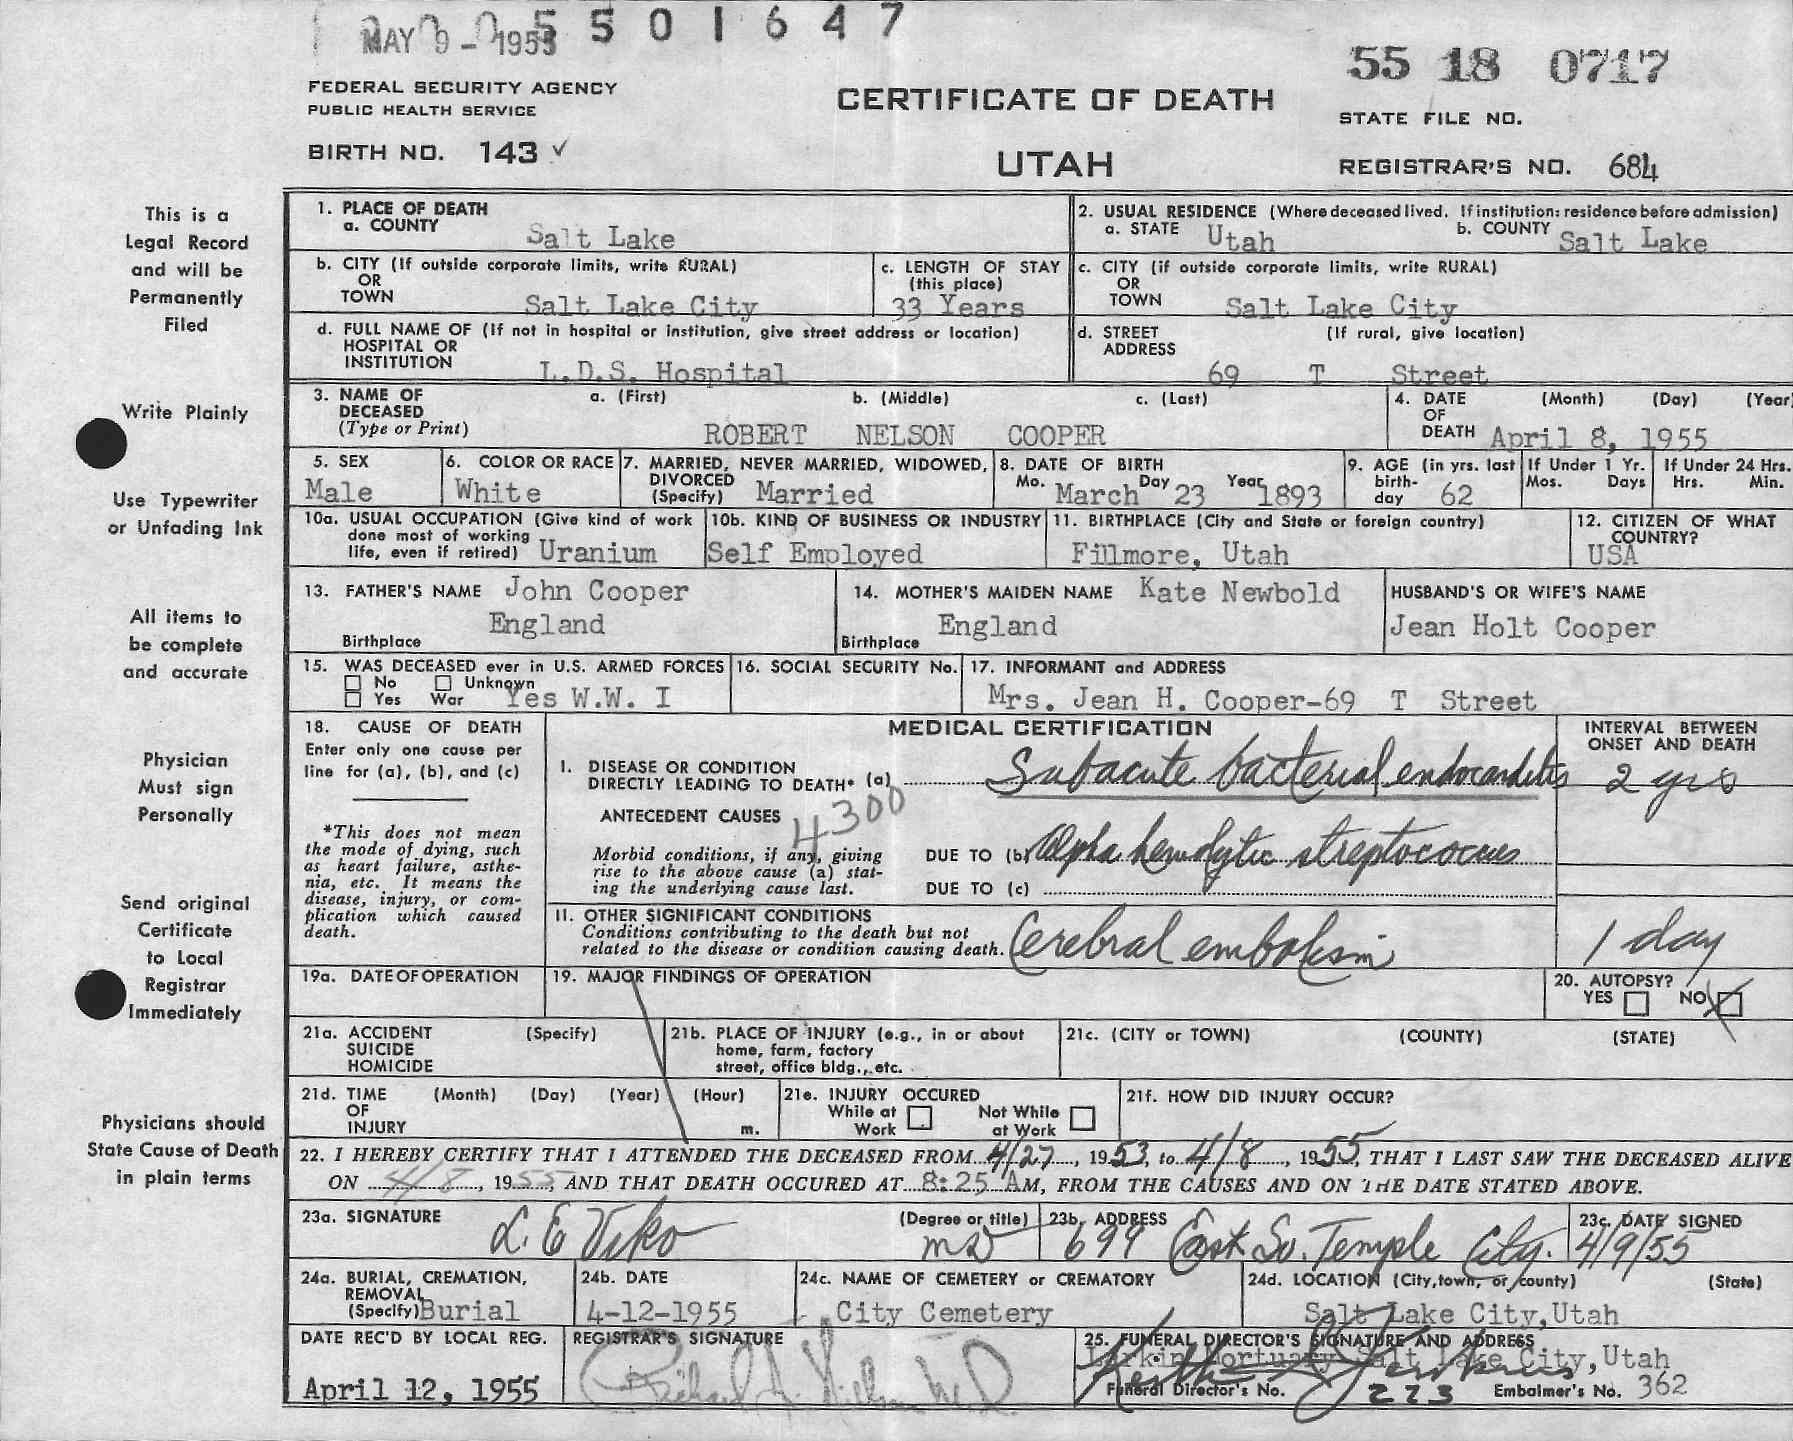 MAY 9 - 1955 5501647
55 18 0717
FEDERAL SECURITY AGENCY
PUBLIC HEALTH SERVICE
CERTIFICATE OF DEATH
STATE FILE NO.
BIRTH NO. 143 ✓
UTAH
REGISTRAR'S NO. 684
This is a
Legal Record
and will be
Permanently
Filed
Write Plainly
Use Typewriter
or Unfading Ink
All items to
be complete
and accurate
Physician
Must sign
Personally
Send original
Certificate
to Local
Registrar
Immediately
Physicians should
State Cause of Death
in plain terms
1. PLACE OF DEATH
a. COUNTY Salt Lake
2. USUAL RESIDENCE (Where deceased lived. If institution: residence before admission)
a. STATE Utah b. COUNTY Salt Lake
b. CITY (If outside corporate limits, write RURAL)
OR
TOWN Salt Lake City
c. LENGTH OF STAY
(this place)
33 Years
c. CITY (if outside corporate limits, write RURAL)
OR
TOWN Salt Lake City
d. FULL NAME OF (If not in hospital or institution, give street address or location)
HOSPITAL OR
INSTITUTION L.D.S. Hospital
d. STREET (If rural, give location)
ADDRESS
69 T Street
3. NAME OF
DECEASED
(Type or Print)
a. (First) b. (Middle) c. (Last)
ROBERT NELSON COOPER
4. DATE (Month) (Day) (Year)
OF
DEATH April 8, 1955
5. SEX
Male
6. COLOR OR RACE
White
7. MARRIED, NEVER MARRIED, WIDOWED,
DIVORCED
(Specify) Married
8. DATE OF BIRTH
Mo. March Day 23 Year 1893
9. AGE (in yrs. last
birth-
day 62
If Under 1 Yr.
Mos. Days
If Under 24 Hrs.
Hrs. Min.
10a. USUAL OCCUPATION (Give kind of work
done most of working
life, even if retired) Uranium
10b. KIND OF BUSINESS OR INDUSTRY
Self Employed
11. BIRTHPLACE (City and State or foreign country)
Fillmore, Utah
12. CITIZEN OF WHAT
COUNTRY?
USA
13. FATHER'S NAME John Cooper
England
Birthplace
14. MOTHER'S MAIDEN NAME Kate Newbold
England
Birthplace
HUSBAND'S OR WIFE'S NAME
Jean Holt Cooper
15. WAS DECEASED ever in U.S. ARMED FORCES
No Unknown
Yes War Yes W.W. I
16. SOCIAL SECURITY No.
17. INFORMANT and ADDRESS
Mrs. Jean H. Cooper-69 T Street
18. CAUSE OF DEATH
Enter only one cause per
line for (a), (b), and (c)
*This does not mean
the mode of dying, such
as heart failure, asthe-
nia, etc. It means the
disease, injury, or com-
plication which caused
death.
MEDICAL CERTIFICATION
INTERVAL BETWEEN
ONSET AND DEATH
I. DISEASE OR CONDITION
DIRECTLY LEADING TO DEATH* (a) Subacute bacterial endocarditis 2 yrs
ANTECEDENT CAUSES 4300
Morbid conditions, if any, giving
rise to the above cause (a) stat-
ing the underlying cause last.
DUE TO (b) Alpha hemolytic streptococcus
DUE TO (c)
II. OTHER SIGNIFICANT CONDITIONS
Conditions contributing to the death but not
related to the disease or condition causing death. Cerebral embolism 1 day
19a. DATE OF OPERATION
19. MAJOR FINDINGS OF OPERATION
20. AUTOPSY?
YES NO X
21a. ACCIDENT (Specify)
SUICIDE
HOMICIDE
21b. PLACE OF INJURY (e.g., in or about
home, farm, factory
street, office bldg., etc.
21c. (CITY or TOWN) (COUNTY) (STATE)
21d. TIME (Month) (Day) (Year) (Hour)
OF
INJURY m.
21e. INJURY OCCURED
While at Work Not While at Work
21f. HOW DID INJURY OCCUR?
22. I HEREBY CERTIFY THAT I ATTENDED THE DECEASED FROM 4/27, 1953, to 4/8, 1955, THAT I LAST SAW THE DECEASED ALIVE
ON 4/8, 1955, AND THAT DEATH OCCURED AT 8:25 AM, FROM THE CAUSES AND ON THE DATE STATED ABOVE.
23a. SIGNATURE (Degree or title)
L. E Viko MD
23b. ADDRESS
699 East So. Temple City.
23c. DATE SIGNED
4/9/55
24a. BURIAL, CREMATION,
REMOVAL
(Specify) Burial
24b. DATE
4-12-1955
24c. NAME OF CEMETERY or CREMATORY
City Cemetery
24d. LOCATION (City, town, or county) (State)
Salt Lake City, Utah
DATE REC'D BY LOCAL REG.
April 12, 1955
REGISTRAR'S SIGNATURE
Richard M.D.
25. FUNERAL DIRECTOR'S SIGNATURE AND ADDRESS
Larkin Mortuary Salt Lake City, Utah
Funeral Director's No. 223 Embalmer's No. 362